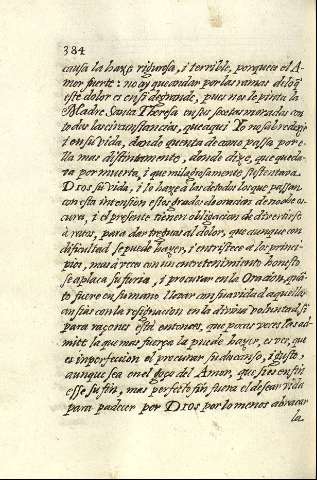 384
causa la haze rigurosa, i terrible, porque es el A-
mor fuerte: no ay que andar por las ramas de lo q̃
esté dolor es en si de grande, pues nos le pinta la
Madre Santa Theresa en sus sextas moradas con
todas las circunstancias, que aqui Yo no sabre dezir
i en su vida, dando quenta de como passa por e-
lla mas distintamente, donde dize, que queda-
va por muerta, i que milagrosamente sustentava
DIOS su vida, i lo haze a las de todos los que passan
con esta intension estos grados de oracion de noche es-
cura, i el presente tienen obligacion de divertirse
à vezes, para dar treguas al dolor, que aunque con
dificultad se puede hazer, i entristece a los princi-
pios, mas à vezes con un entretenimiento honesto
se aplaca su furia, i procurar en la Oracion, quã-
to fuere en su mano llevar con suavidad aquellas
ansias con la resignacion en la divina voluntad, si
para razones està entonces, que pocas vezes las ad-
mite la que mas fuerça la puede hazer, es ver, que
es imperfeccion el procurar su descanso, i gusto,
aunque sea en el goço del Amor, que si es en fin
esse su fin, mas perfecto fin fuera el desear vida
para padecer por DIOS por lo menos abraçar
la